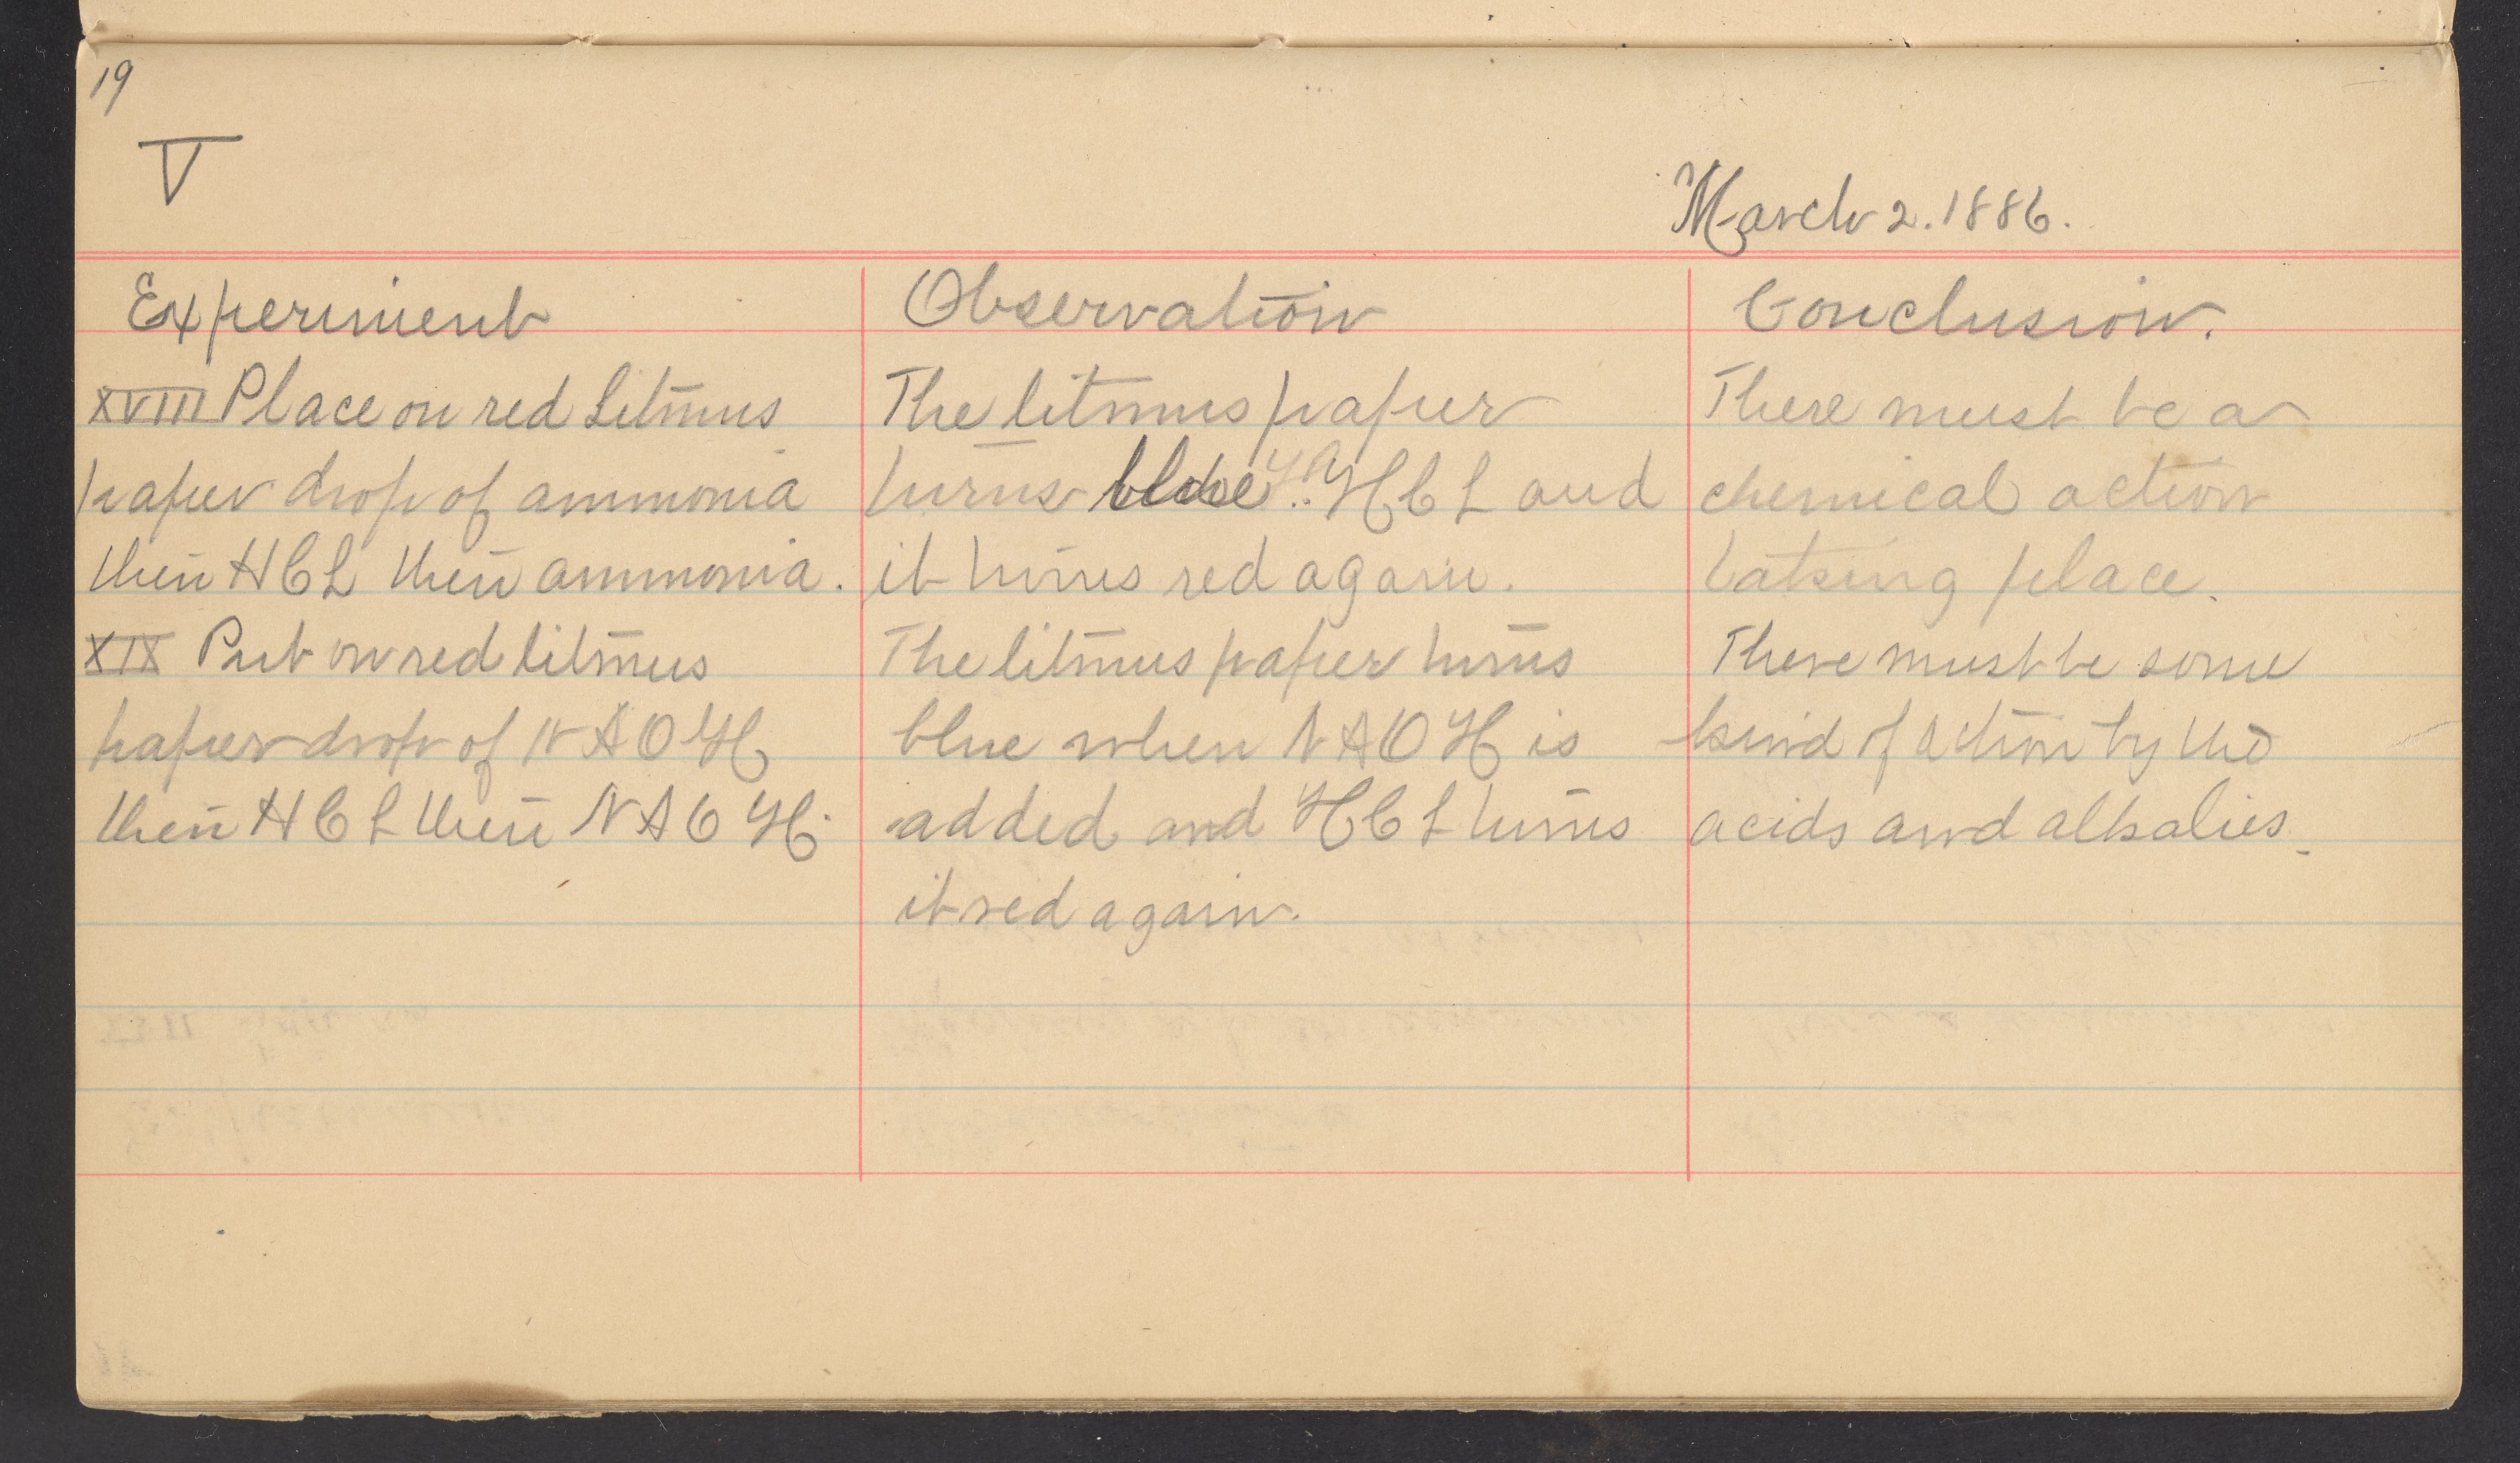 19
V
March 2. 1886.
Experiment
XVIII Place on red Litmus
paper drop of ammonia
then HCL then ammonia.
XIX Put on red litmus
paper drop of NAOH
then HCL then NAOH.
Observation
The litmus paper
turns blue HCL and
it turns red again.
The litmus paper turns
blue when NAOH is
added and HCL turns
it red again.
Conclusion.
There must be a
chemical action
taking place.
There must be some
kind of action by the
acids and alkalies.